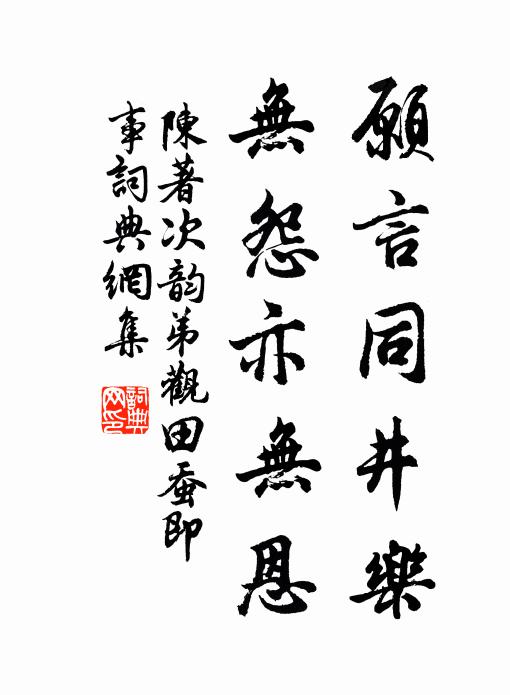 願言同井樂
無怨亦無恩
陳著次韵弟觀田蚕即
事詞典網集
詞典
网印